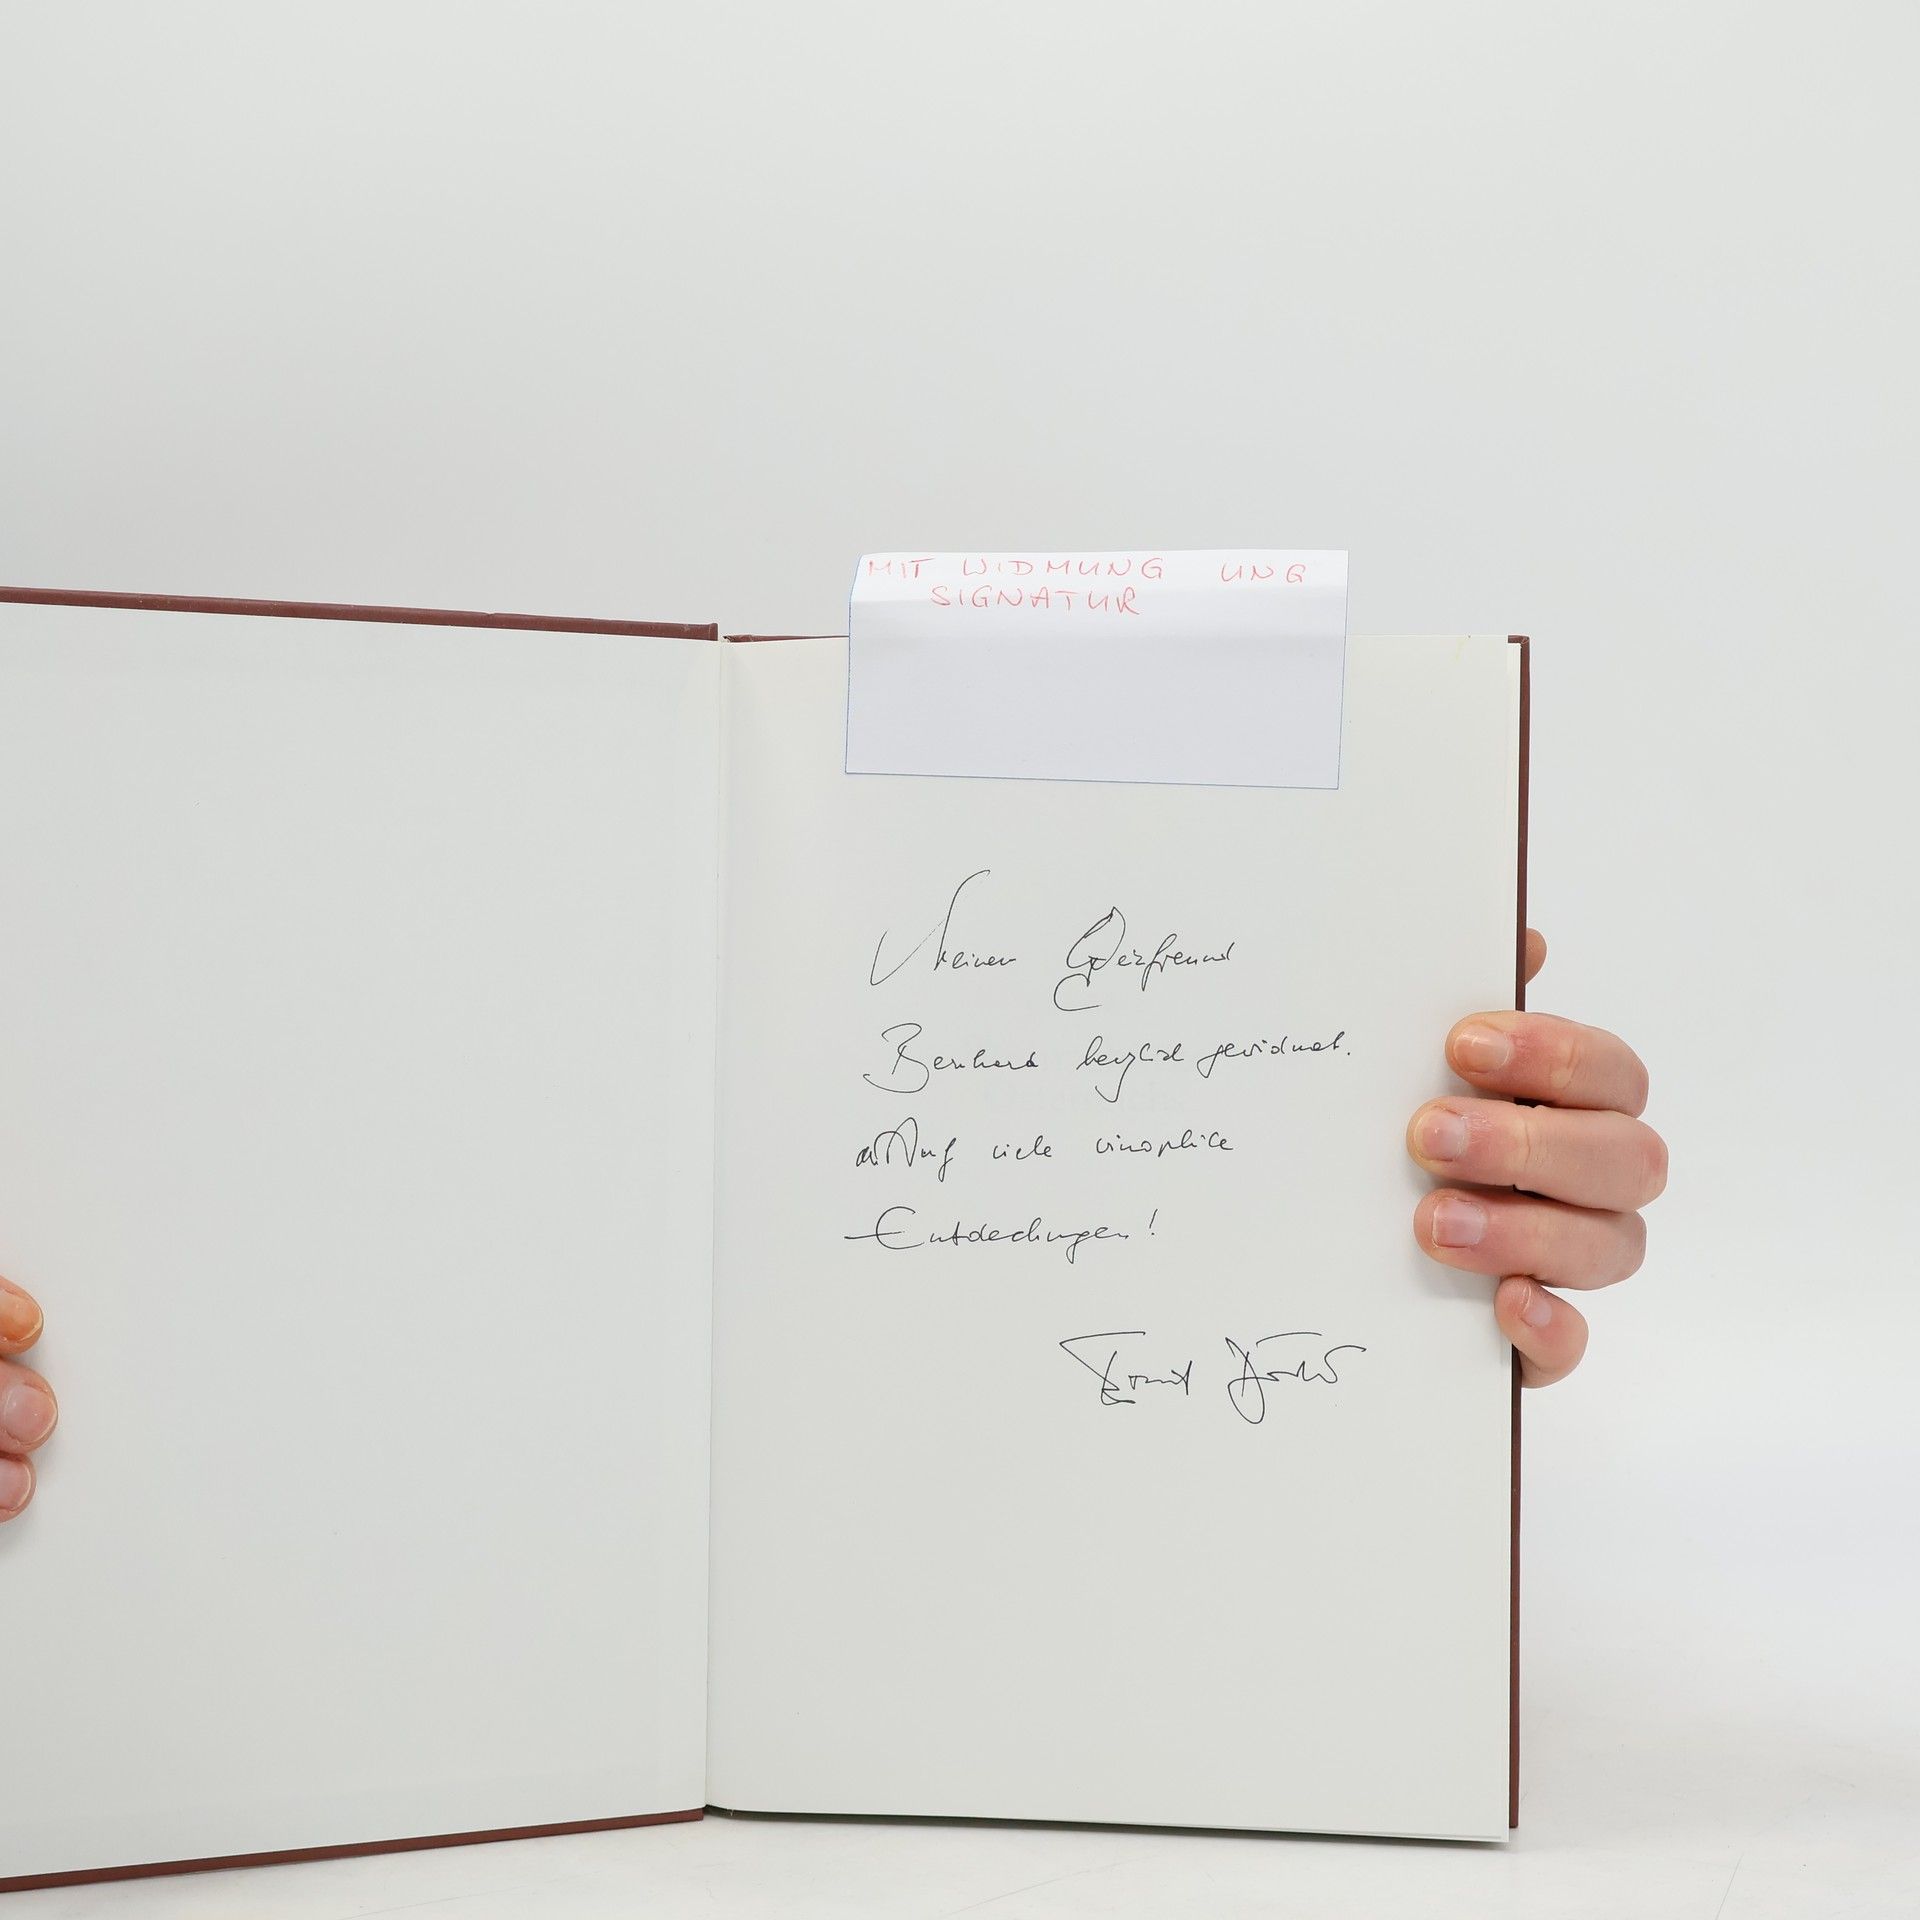 MIT WIDMUNG UNG
SIGNATUR
Meinem Weinfreund
Bernhard herzlich gewidmet.
Auf viele vinophile
Entdeckungen!